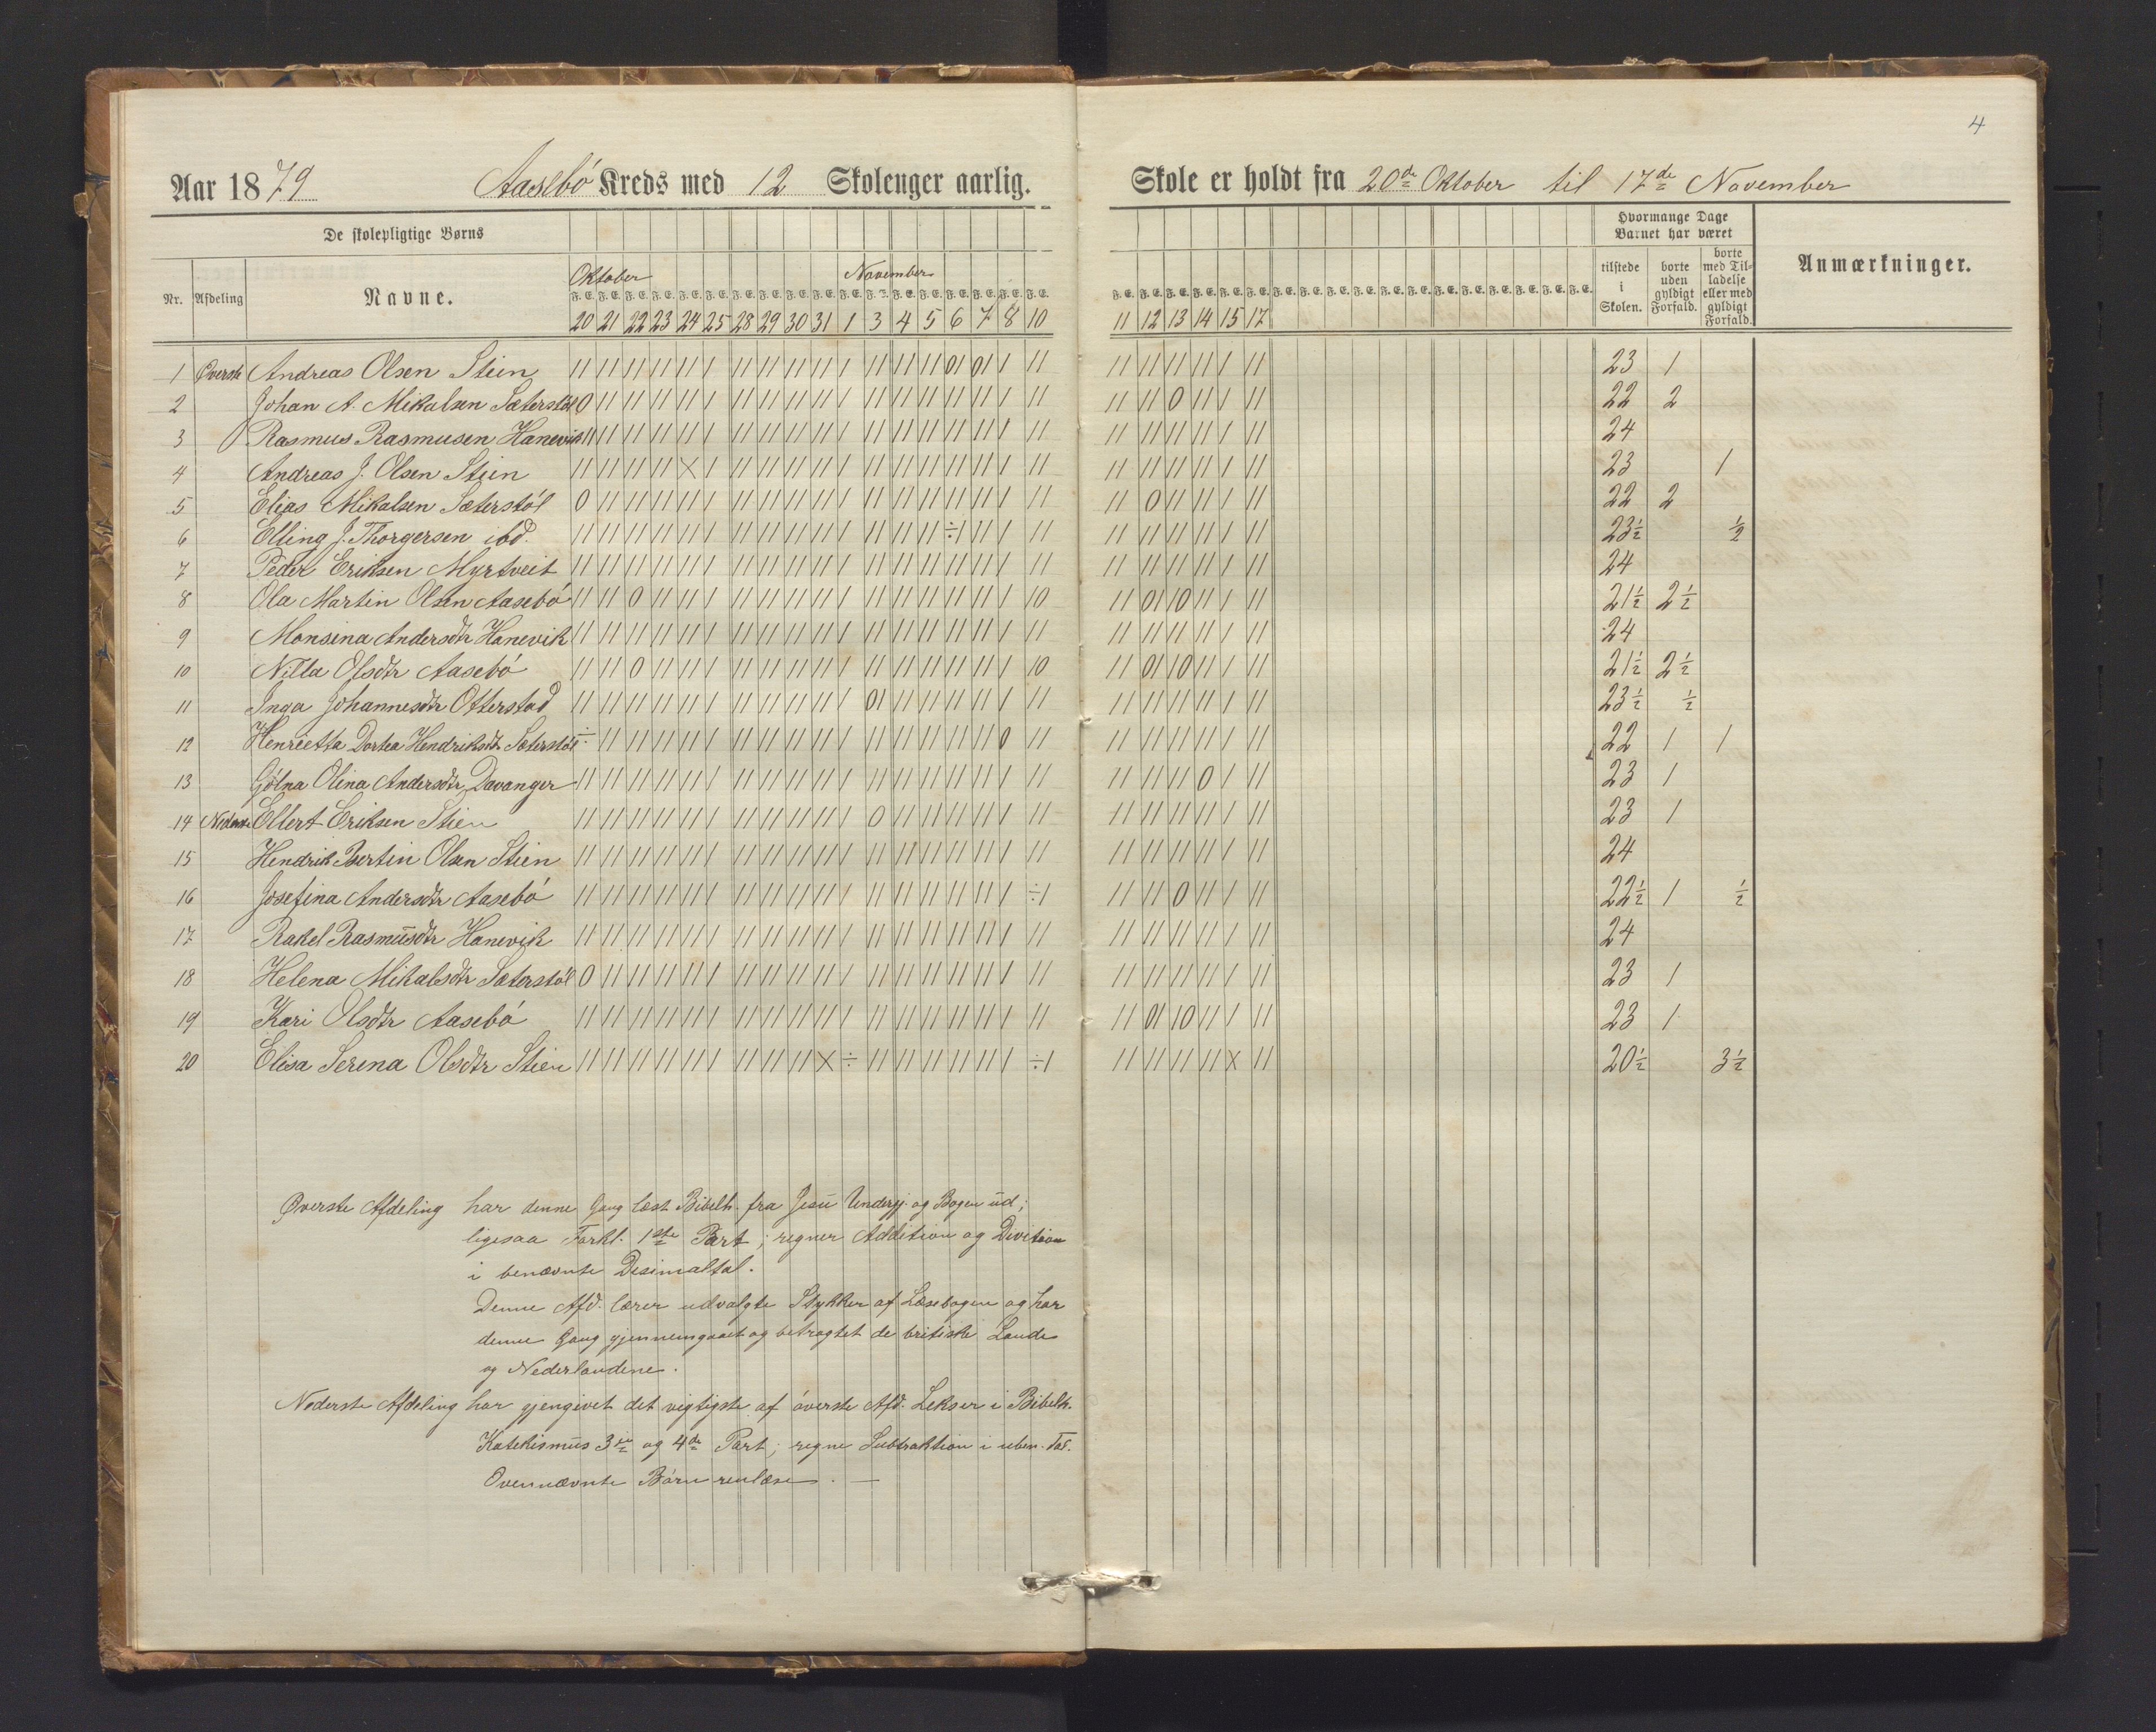 4
Aar 1879 Aasebö Kreds med 12 Skoleuger aarlig. Skole er holdt fra 20de Oktober til 17de November
De skolepligtige Børns
Hvormange Dage Barnet har været
Nr. Afdeling Navne.
Oktober November
F. E. F. E. F. E. F. E. F. E. F. E. F. E. F. E. F. E. F. E. F. E. F. E. F. E. F. E. F. E. F. E. F. E. F. E.
20 21 22 23 24 25 28 29 30 31 1 3 4 5 6 7 8 10
F. E. F. E. F. E. F. E. F. E. F. E. F. E. F. E. F. E. F. E. F. E. F. E. F. E. F. E. F. E. F. E. F. E. F. E.
11 12 13 14 15 17
tilstede i Skolen.
borte uden gyldigt Forfald.
borte med Tilladelse eller med gyldigt Forfald.
Anmærkninger.
1 Øverste Andreas Olsen Stien 11 11 11 11 11 1 11 11 11 11 1 11 11 11 01 01 1 11 11 11 11 11 1 11 23 1
2 Johan A. Mikalsen Sæterstöl 0 11 11 11 11 1 11 11 11 11 1 11 11 11 11 11 1 11 11 11 0 11 1 11 22 2
3 Rasmus Rasmusen Hanevik 11 11 11 11 11 1 11 11 11 11 1 11 11 11 11 11 1 11 11 11 11 11 1 11 24
4 Andreas J. Olsen Stien 11 11 11 11 X 1 11 11 11 11 1 11 11 11 11 11 1 11 11 11 11 11 1 11 23 1
5 Elias Mikalsen Sæterstöl 0 11 11 11 11 1 11 11 11 11 1 11 11 11 11 11 1 11 11 0 11 11 1 11 22 2
6 Elling J. Thorgersen ibd. 11 11 11 11 11 1 11 11 11 11 1 11 11 11 ÷1 11 1 11 11 11 11 11 1 11 23½ ½
7 Peder Eriksen Myrtveit 11 11 11 11 11 1 11 11 11 11 1 11 11 11 11 11 1 11 11 11 11 11 1 11 24
8 Ola Martin Olsen Aasebö 11 11 0 11 11 1 11 11 11 11 1 11 11 11 11 11 1 10 11 01 10 11 1 11 21½ 2½
9 Monsina Andersdtr Hanevik 11 11 11 11 11 1 11 11 11 11 1 11 11 11 11 11 1 11 11 11 11 11 1 11 24
10 Nilla Olsdtr Aasebö 11 11 0 11 11 1 11 11 11 11 1 11 11 11 11 11 1 10 11 01 10 11 1 11 21½ 2½
11 Inga Johannesdtr Otterstad 11 11 11 11 11 1 11 11 11 11 1 01 11 11 11 11 1 11 11 11 11 11 1 11 23½ ½
12 Henrietta Dortea Hendriksdtr Sæterstöl ÷ 11 11 11 11 1 11 11 11 11 1 11 11 11 11 11 0 11 11 11 11 11 1 11 22 1 1
13 Gölna Olina Andersdtr Davanger 11 11 11 11 11 1 11 11 11 11 1 11 11 11 11 11 1 11 11 11 11 0 1 11 23 1
14 Nederste Ellert Eriksen Stien 11 11 11 11 11 1 11 11 11 11 1 0 11 11 11 11 1 11 11 11 11 11 1 11 23 1
15 Hendrik Bertin Olsen Stien 11 11 11 11 11 1 11 11 11 11 1 11 11 11 11 11 1 11 11 11 11 11 1 11 24
16 Josefina Andersdtr Aasebö 11 11 11 11 11 1 11 11 11 11 1 11 11 11 11 11 1 ÷1 11 11 0 11 1 11 22½ 1 ½
17 Rakel Rasmusdtr Hanevik 11 11 11 11 11 1 11 11 11 11 1 11 11 11 11 11 1 11 11 11 11 11 1 11 24
18 Helena Mikalsdtr Sæterstöl 0 11 11 11 11 1 11 11 11 11 1 11 11 11 11 11 1 11 11 11 11 11 1 11 23 1
19 Kari Olsdtr Aasebö 11 11 11 11 11 1 11 11 11 11 1 11 11 11 11 11 1 11 11 01 10 11 1 11 23 1
20 Elisa Serena Olsdtr Stien 11 11 11 11 11 1 11 11 11 X ÷ 11 11 11 11 11 1 ÷1 11 11 11 11 X 11 20½ 3½
Øverste Afdeling har denne Gang læst Bibelh. fra Jesu Undergj. og Bogen ud;
ligesaa Forkl. 1ste Part; regner Addition og Divition
i benævnte Desimaltal.
Denne Afd. lærer udvalgte Stykker af Læsebogen og har
denne Gang gjennemgaaet og betragtet de britiske Lande
og Nederlandene.
Nederste Afdeling har gjengivet det vigtigste af överste Afd. Lekser i Bibelh.
Katekismus 3die og 4de Part; regne Subtraktion i uben. Tal.
Ovennævnte Börn renlæse. —